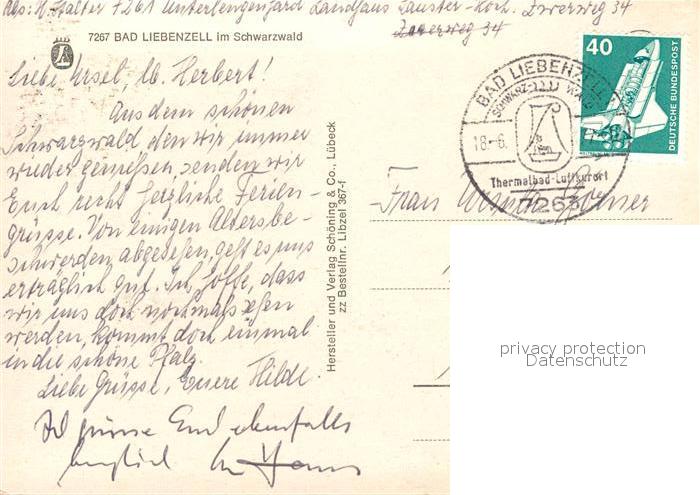 Abs: H. Walter 7261 Unterlengenhard Landhaus Zauster-Koch. Zwerweg 34
Zwerweg 34
7267 BAD LIEBENZELL im Schwarzwald
Liebe Ursel, lb. Herbert!
Aus dem schönen
Schwarzwald, den wir immer
wieder genießen, senden wir
Euch recht herzliche Ferien-
grüsse. Von einigen Altersbe-
schwerden abgesehen, geht es uns
erträglich gut. Ich hoffe, dass
wir uns doch nochmals sehen
werden, kommt doch einmal
in die schöne Pfalz.
Liebe Grüsse, Euere Hilde.
Ich grüsse Euch ebenfalls
herzlich
Hersteller und Verlag Schöning & Co., Lübeck
zz Bestellnr. Libzel 367-f
BAD LIEBENZELL
SCHWARZWALD
18.-6.
Thermalbad-Luftkurort
7263
40
DEUTSCHE BUNDESPOST
Frau Ursula
privacy protection
Datenschutz